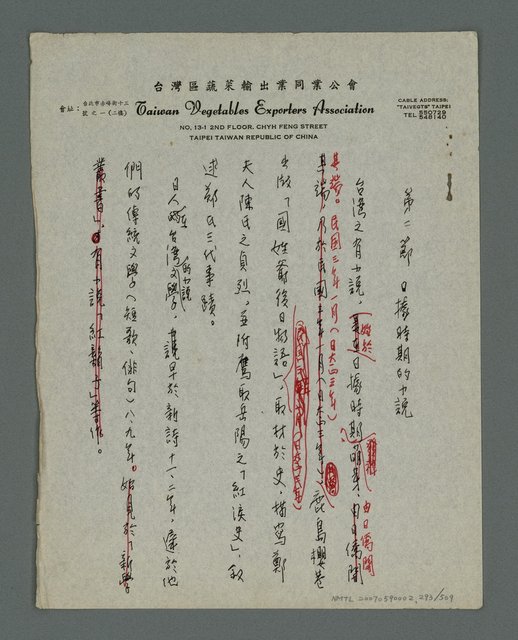 台灣區蔬菜輸出業同業公會
會址：台北市赤峰街十三號之一（二樓）
Taiwan Vegetables Exporters Association
CABLE ADDRESS:
"TAIVEGTB" TAIPEI
TEL 550729
NO. 13-1 2ND FLOOR. CHYH FENG STREET
TAIPEI TAIWAN REPUBLIC OF CHINA
第二節 日據時期的小說
台灣之有小說，始於日據時期，由日僑開
其端。民國三年一月（日大正三年）鹿島櫻巷
出版「國姓爺後日物語」，取材於史，描寫鄭
夫人陳氏之貞烈，並附鷹取岳陽之「紅淚史」，敘
述鄭氏三代事蹟。
日人在台灣的小說，早於新詩十一、二年，遲於他
們的傳統文學（短歌、俳句）八、九年。
NMTL 20070590002, 293/509